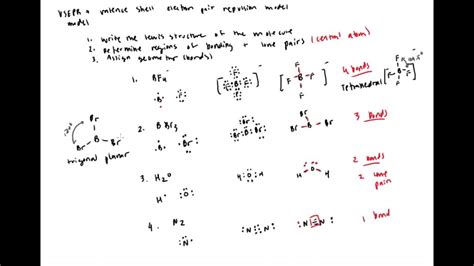 VSEPR → valence shell electron pair repulsion model
model
1. Write the lewis structure of the molecule
2. Determine regions of bonding + lone pairs (central atom)
3. Assign geometry (bonds)
1. BF4 -
F B F F F
4 bonds
Tetrahedral
2. BBr3
Br B Br Br
3 bonds
Br B Br Br
trigonal planar
3. H2O
H O
H O H
H O H
2 bonds
2 lone pair
4. N2
N
N N
N≡N
1 bond